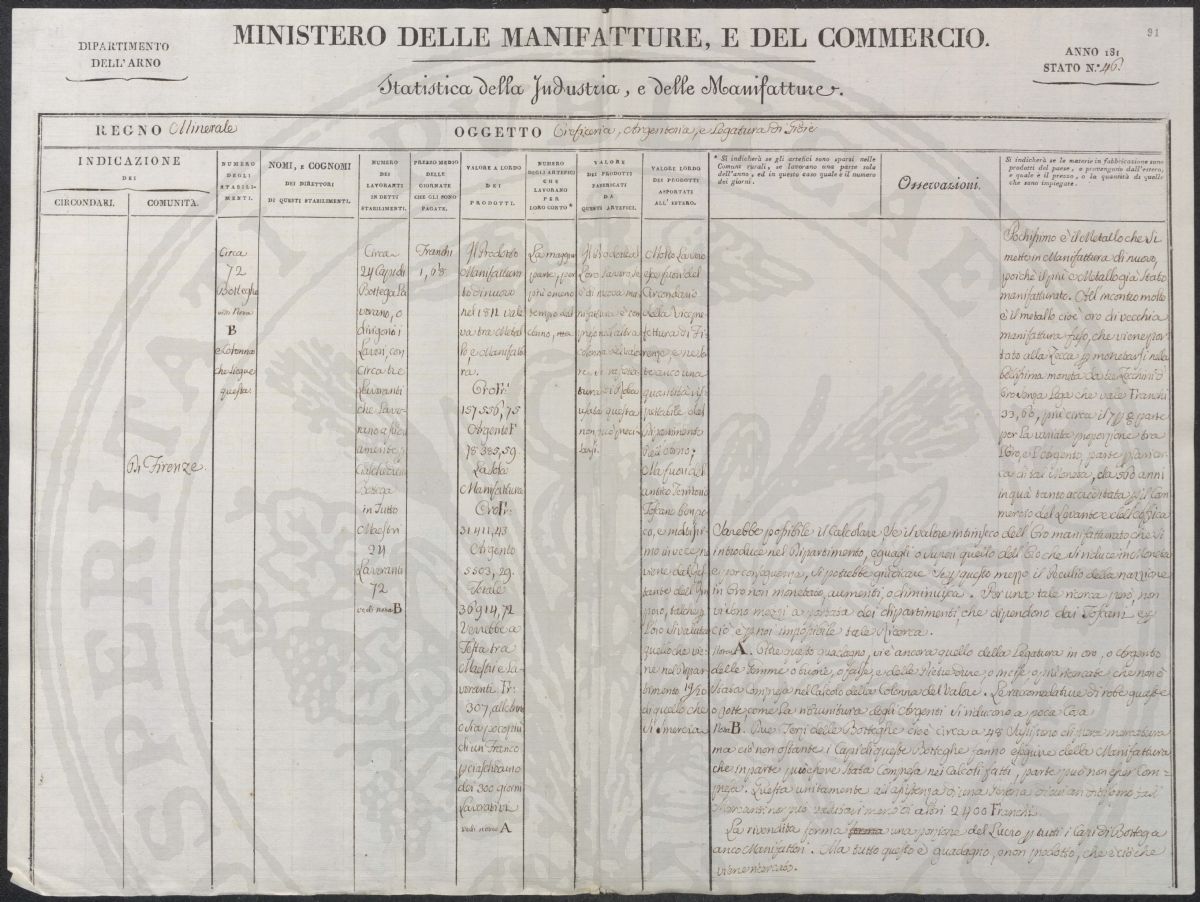 91
DIPARTIMENTO
DELL'ARNO
MINISTERO DELLE MANIFATTURE, E DEL COMMERCIO.
ANNO 181
STATO N.° 46.
Statistica della Industria, e delle Manifatture.
REGNO Minerale
OGGETTO Oreficeria, Argenteria, e Legatura di Gioie
INDICAZIONE
DEI
CIRCONDARI.
COMUNITÀ.
NUMERO
DEGLI
STABILI-
MENTI.
NOMI, E COGNOMI
DEI DIRETTORI
DI QUESTI STABILIMENTI.
NUMERO
DEI
LAVORANTI
IN DETTI
STABILIMENTI.
PREZZO MEDIO
DELLE
GIORNATE
CHE GLI SONO
PAGATE.
VALORE A LORDO
DEI
PRODOTTI.
NUMERO
DEGLI ARTEFICI
CHE
LAVORANO
PER
LORO CONTO *
VALORE
DEI PRODOTTI
FABBRICATI
DA
QUESTI ARTEFICI.
VALORE LORDO
DEI PRODOTTI
ASPORTATI
ALL'ESTERO.
* Si indicherà se gli artefici sono sparsi nelle
Comuni rurali, se lavorano una parte sola
dell'anno, ed in questo caso quale è il numero
dei giorni.
Osservazioni.
Si indicherà se le materie in fabbricazione sono
prodotti del paese, o provengono dall'estero,
e quale è il prezzo, o la quantità di quelle
che sono impiegate.
Di Firenze.
Circa
72
Botteghe
vedi Nota
B
e Colonna
che siegue
questa
Circa
24 Capi di
Bottega la
vorano, o
dirigono i
Lavori, con
Circa tre
Lavoranti
che lavo
rano
Bottega
in Tutto
Maestri
24
Lavoranti
72
vedi nota B
Franchi
1,68
Il Prodotto
Manifattura
to di nuovo
nel 1811 vale
va tra Metal
lo, e Manifattu
ra.
Oro Fr.
157556,75
Argento F.
78385,59
La sola
Manifattura
Oro Fr.
31411,43
Argento
5503,29
Totale
36914,72
Verrebbe a
Testa tra
Maestri e La
vorante Fr:
307
di un Franco
dei 300 giorni
Lavorativi
vedi nota A
La maggior
parte, per
più o meno
tempo dell'
anno, ma
Il Prodotto
Loro lavoro se
è di nuova ma
nifattura è com
preso nell'altra
colonna
questa
non può
Molto Lavoro
esce fuori del
Circondario
della Viceprefettura di Fi
renze, e ne
anco una
quantità
del
Dipartimento
dell'Arno;
Ma fuori del
antico Territorio
Toscano ben po
co, e moltissi
mo invece ne
viene
si valuta
quello che vie
ne nel Dipar
timento 19/20
di quello che
si smercia.
Pochissimo è il Metallo che si
mette in Manifattura di nuovo,
poichè il più è Metallo già stato
manifatturato. All'incontro molto
è il metallo cioè oro di vecchia
manifattura fuso, che viene por
tato alla Zecca
bellissima moneta
che vale Franchi
più circa
per la variata proporzione tra
l'oro, e l'argento,
di tal Moneta, da 500 anni
in quà tanto accreditata
mercio del Levante e dell'Affrica
Sarebbe possibile il Calcolare se il valore intrinseco dell'Oro manifatturato, che si
introduce nel Dipartimento, eguagli o superi quello dell'Oro che si riduce in Moneta
e per conseguenza, si potrebbe giudicare se per questo mezzo il Peculio della nazione
in Oro non monetato, aumenti, o diminuisca. Per una tale ricerca però, non
vi sono mezzi a portata dei dipartimenti, che dipendono dai Toscani, e per
ciò è per noi impossibile tale Ricerca.
Nota A. Oltre questo guadagno, vi è ancora quello della Legatura in oro, o Argento
delle Gemme o buone, o false, e delle Pietre dure, o messe, o più ricercate che non è
stata Compresa nel Calcolo della Colonna del Valore. Le racomodature di robe guaste
o rotte, come la ripulitura degli Argenti si riducono a poca Cosa
Nota B. Due Terzi delle Botteghe cioè circa a 48 sussistono di mera mercatura
ma ciò non ostante i Capi di queste Botteghe fanno eseguire della Manifattura
che in parte può essere stata Compresa nei Calcoli fatti, parte può non esser Com
presa. Questa unitamente all'
non può valutarsi meno di altri 2400 Franchi.
La rivendita forma una porzione del Lucro per tutti i Capi di Bottega
anco Manifattori. Ma tutto questo è guadagno, e non prodotto, che è ciò che
viene ricercato.